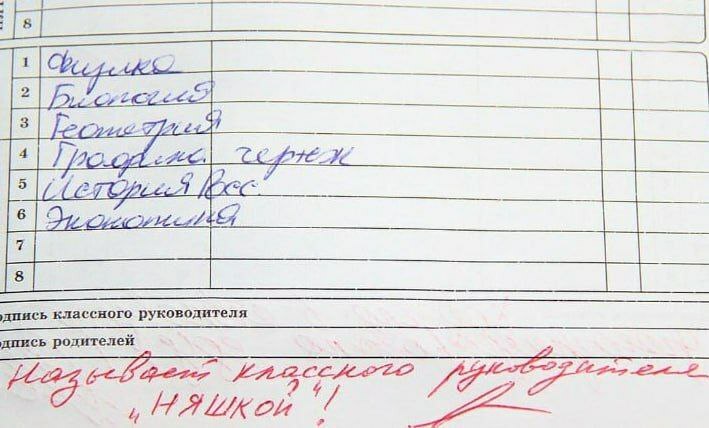 8
1 Физика
2 Биология
3 Геометрия
4 Графика чертеж
5 История Росс.
6 Экономика
7
8
одпись классного руководителя
одпись родителей
Называет классного руководителя
„НЯШКОЙ"!